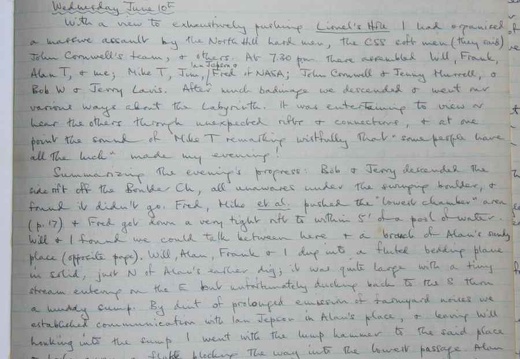 Wednesday June 10th
With a view to exhaustively pushing Lionel's Hole I had organised
a massive assault by the North Hill hard men, the CSS soft men (they said)
John Cornwell's team, & others. At 7.30 pm there assembled Will, Frank,
Alan T, & me; Mike T, Jim, Ian Jepson & Fred of NASA; John Cornwell & Jenny Murrell, &
Bob W & Jerry Lavis. After much badinage we descended & went our
various ways about the Labyrinth. It was entertaining to view or
hear the others through unexpected rifts & connections, & at one
point the sound of Mike T remarking wistfully that "some people have
all the luck" made my evening!
Summarizing the evening's progress: Bob & Jerry descended the
side rift off the Boulder Ch, all unawares under the swinging boulder, &
found it didn't go. Fred, Mike et al. pushed the "lowest chamber" area
(p.17) & Fred got down a very tight rift to within 5' of a pool of water.
Will & I found we could talk between here & a branch of Alan's sandy
place (opposite page). Will, Alan, Frank & I dug into a fluted bedding plane
in solid, just N of Alan's earlier dig; it was quite large with a tiny
stream entering on the E but unfortunately ducking back to the S thro
a muddy sump. By dint of prolonged emission of farmyard noises we
established communication with Ian Jepson in Alan's place, & leaving Will
honking into the sump I went with the lump hammer to the said place
flake blocking the way into the lowest passage. Alan